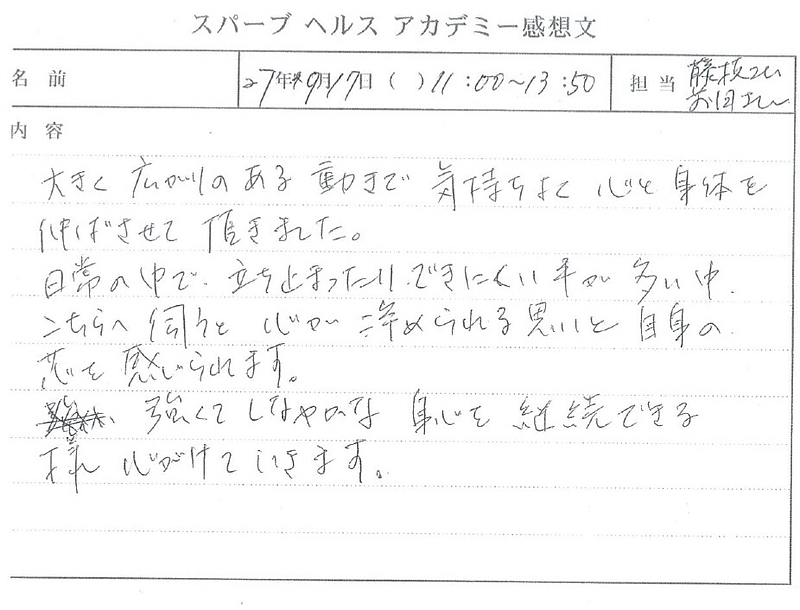 スパーブ ヘルス アカデミー感想文
名 前
27年 9月17日 ( ) 11:00~13:50
担 当
内 容
大きく 広がりの ある 動きで 気持ちよく 心と 身体を
伸ばさせて 頂きました。
日常の中で、立ち止まったり、できにくい 事が 多い中、
こちらへ 伺うと 心が 浄められる 思いと 自身の
芯を 感じられます。
強くて しなやかな 身心を 継続できる
様 心がけて いきます。